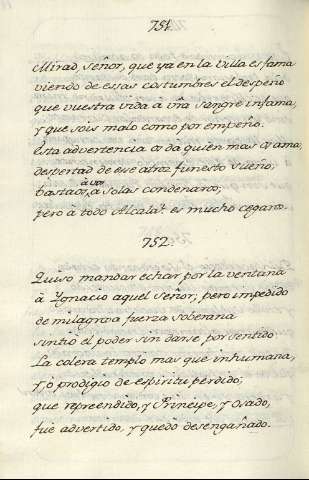 751.
Mirad, Señor, que ya en la Villa es fama
viendo de essas costumbres el despeño
que vuestra vida à vr̃a sangre infama,
y que sois malo como por empeño.
Esta advertencia os da quien mas os ama;
despertad de ese atroz funesto sueño;
bastaos, à vos, à solas condenaros;
pero à todo Alcalà es mucho cegaros.
752.
Quiso mandar echar por la ventana
à Ygnacio aquel Señor; pero impedido
de milagrosa fuerza soberana
sintiò el poder sin darse por sentido.
La colera templo mas que inhumana,
y, ò prodigio de espiritu perdido;
que reprendido, y Principe, y Osado,
fue advertido, y quedò desengañado.